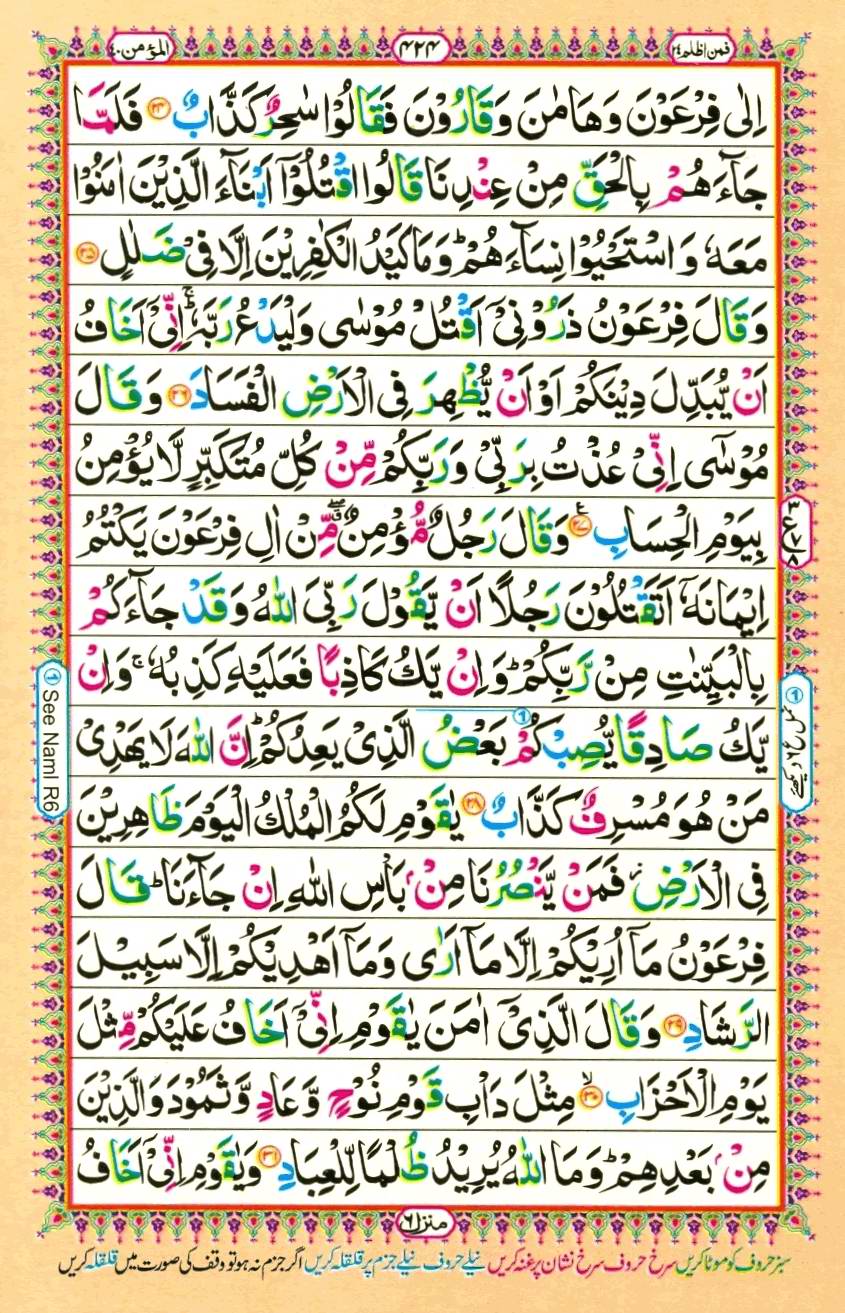 فمن اظلم ٢٤
٤٢٤
المؤمن ٤٠
اِلٰى فِرْعَوْنَ وَهَامٰنَ وَقَارُوْنَ فَقَالُوْا سٰحِرٌ كَذَّابٌ ﴿۲۴﴾ فَلَمَّا
جَآءَهُمْ بِالْحَقِّ مِنْ عِنْدِنَا قَالُوا اقْتُلُوْٓا اَبْنَآءَ الَّذِيْنَ اٰمَنُوْا
مَعَهٗ وَاسْتَحْيُوْا نِسَآءَهُمْ ؕ وَمَا كَيْدُ الْكٰفِرِيْنَ اِلَّا فِىْ ضَلٰلٍ ﴿۲۵﴾
وَقَالَ فِرْعَوْنُ ذَرُوْنِىْٓ اَقْتُلْ مُوْسٰى وَلْيَدْعُ رَبَّهٗ ۚ اِنِّىْٓ اَخَافُ
اَنْ يُّبَدِّلَ دِيْنَكُمْ اَوْ اَنْ يُّظْهِرَ فِى الْاَرْضِ الْفَسَادَ ﴿۲۶﴾ وَقَالَ
مُوْسٰٓى اِنِّىْ عُذْتُ بِرَبِّىْ وَرَبِّكُمْ مِّنْ كُلِّ مُتَكَبِّرٍ لَّا يُؤْمِنُ
بِيَوْمِ الْحِسَابِ ﴿۲۷﴾ ع وَقَالَ رَجُلٌ مُّؤْمِنٌ ۖ مِّنْ اٰلِ فِرْعَوْنَ يَكْتُمُ
اِيْمَانَهٗٓ اَتَقْتُلُوْنَ رَجُلًا اَنْ يَّقُوْلَ رَبِّىَ اللّٰهُ وَقَدْ جَآءَكُمْ
بِالْبَيِّنٰتِ مِنْ رَّبِّكُمْ ؕ وَاِنْ يَّكُ كَاذِبًا فَعَلَيْهِ كَذِبُهٗ ۚ وَاِنْ
يَّكُ صَادِقًا يُّصِبْكُمْ بَعْضُ الَّذِىْ يَعِدُكُمْ ؕ اِنَّ اللّٰهَ لَا يَهْدِىْ
مَنْ هُوَ مُسْرِفٌ كَذَّابٌ ﴿۲۸﴾ يٰقَوْمِ لَكُمُ الْمُلْكُ الْيَوْمَ ظَاهِرِيْنَ
فِى الْاَرْضِ ؗ فَمَنْ يَّنْصُرُنَا مِنْۢ بَاْسِ اللّٰهِ اِنْ جَآءَنَا ؕ قَالَ
فِرْعَوْنُ مَآ اُرِيْكُمْ اِلَّا مَآ اَرٰى وَمَآ اَهْدِيْكُمْ اِلَّا سَبِيْلَ
الرَّشَادِ ﴿۲۹﴾ وَقَالَ الَّذِىْٓ اٰمَنَ يٰقَوْمِ اِنِّىْٓ اَخَافُ عَلَيْكُمْ مِّثْلَ
يَوْمِ الْاَحْزَابِ ﴿۳۰﴾ ۙ مِثْلَ دَاْبِ قَوْمِ نُوْحٍ وَّعَادٍ وَّثَمُوْدَ وَالَّذِيْنَ
مِنْۢ بَعْدِهِمْ ؕ وَمَا اللّٰهُ يُرِيْدُ ظُلْمًا لِّلْعِبَادِ ﴿۳۱﴾ وَيٰقَوْمِ اِنِّىْٓ اَخَافُ
① See Naml R6
منزل ٦
سبز حروف کو موٹا کریں سرخ حروف سرخ نشان پر غنہ کریں نیلے حروف نیلے جزم پر قلقلہ کریں اگر جزم نہ ہو تو وقف کی صورت میں قلقلہ کریں